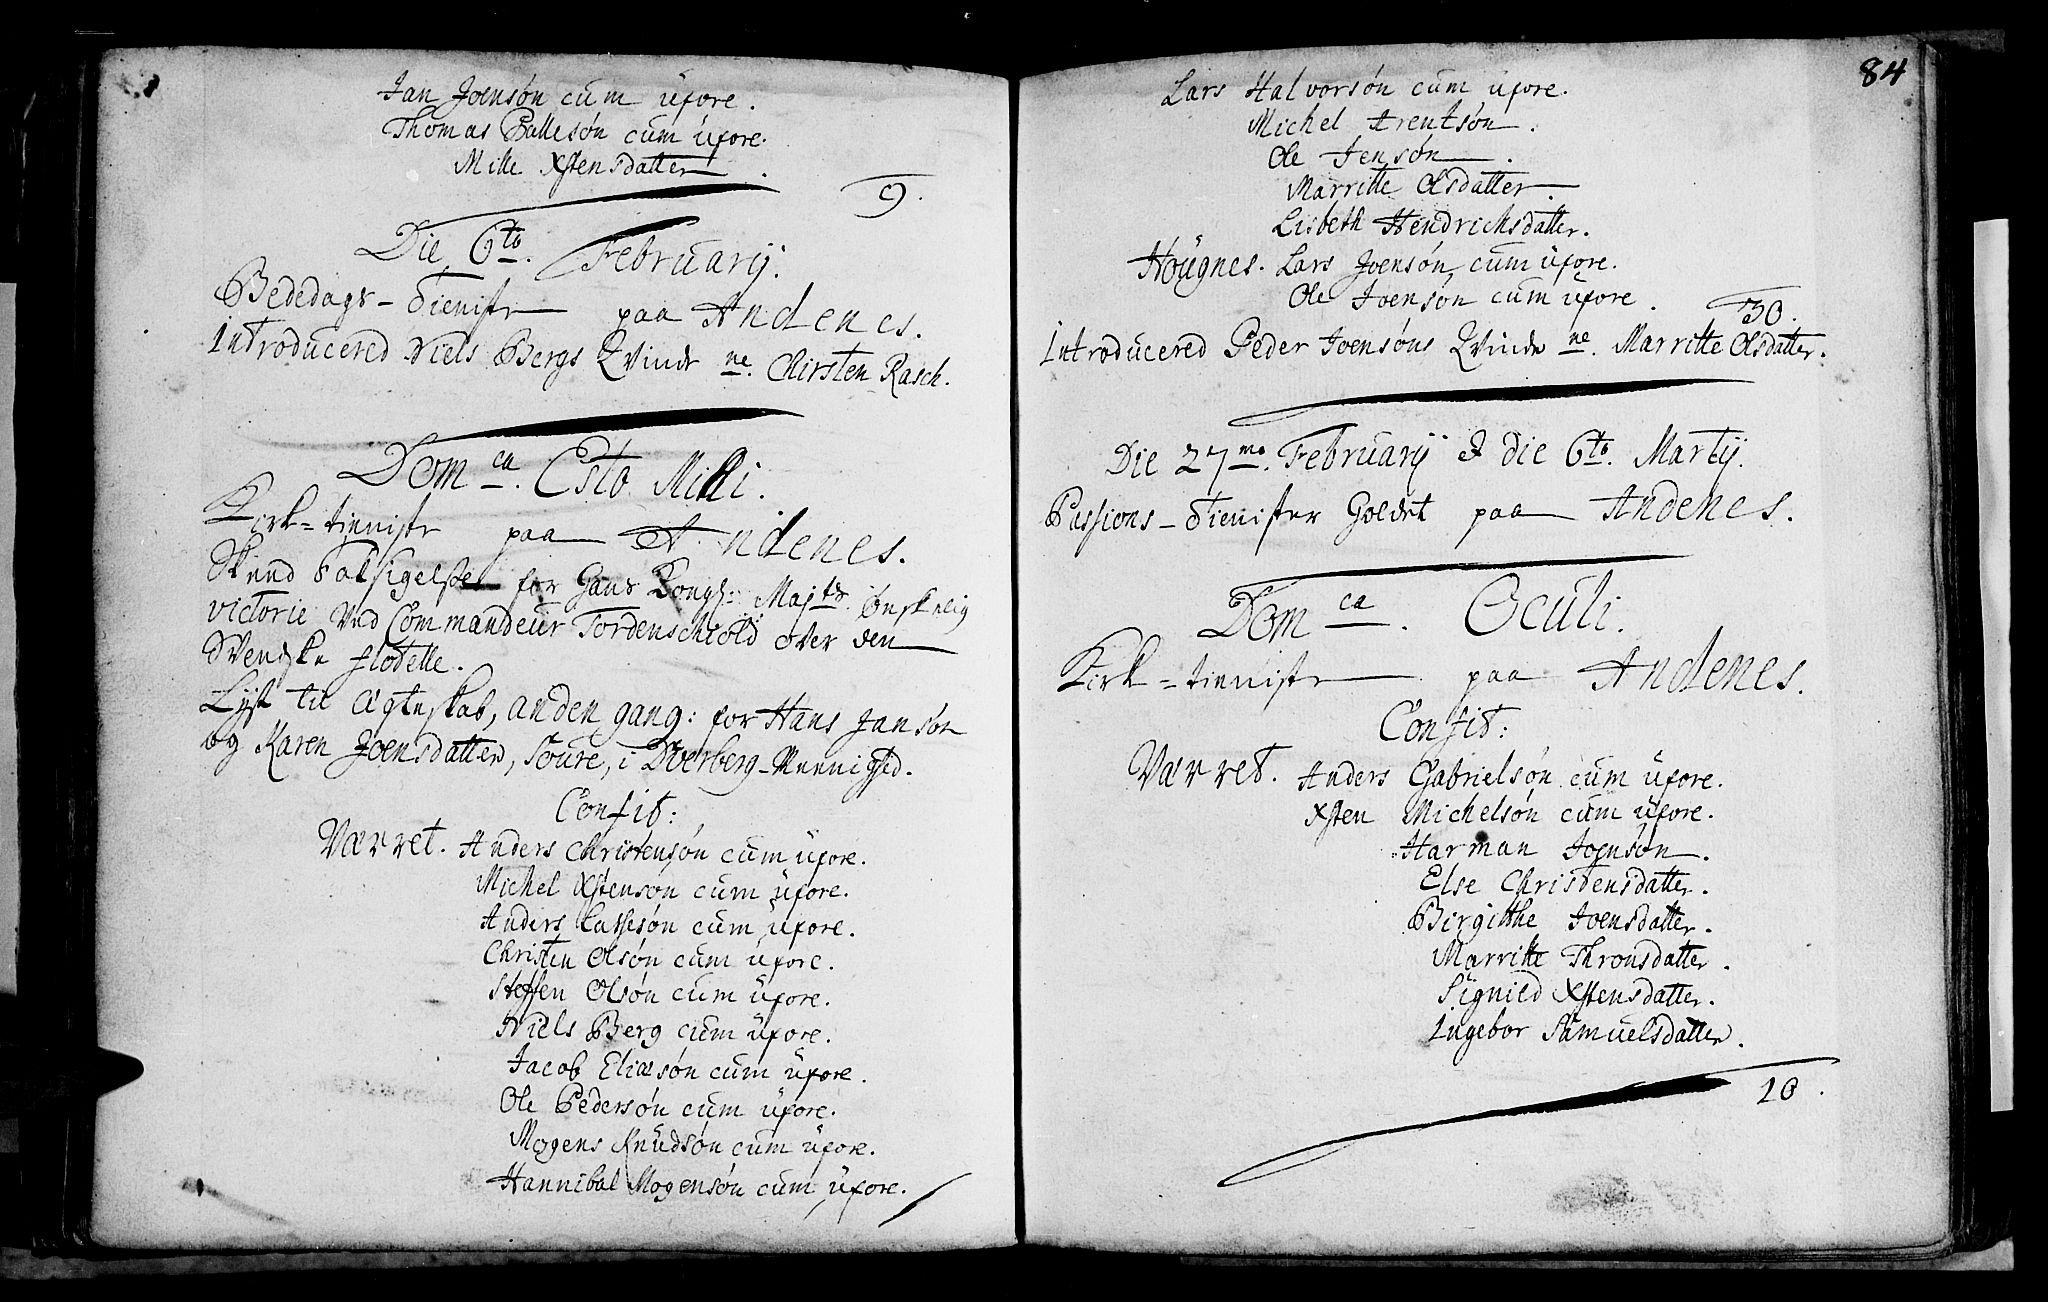 Jan Joensøn cum uxore.
Thomas Pallesøn cum uxore.
Mille Xstensdatter.
9.
Die 6to. Februarij.
Bededags-tieniste paa Andenes.
Introducered Niels Bergs Qvinde ne. Chirsten Rasch.
Domca. Esto Mihi.
Kirk=tieniste paa Andenes.
Skeed Taksigelse for Hans Kongl: Majts. ønskelig
victorie ved Commandeur Tordenschiold over den
Svenske flodelle.
Lyst til Ægteskab, anden gang: for Hans Jansøn
og Karen Joensdatter, Toure, i Dverberg-Meenighed.
Confit:
Værret. Anders Christensøn cum uxore.
Michel Xstensøn cum uxore.
Anders Lassesøn cum uxore.
Christen Olsøn cum uxore.
Steffen Olsøn cum uxore.
Niels Berg cum uxore.
Jacob Eliæsøn cum uxore.
Ole Pedersøn cum uxore.
Mogens Knudsøn cum uxore.
Hannibal Mogensøn cum uxore.
84
Lars Halvorsøn cum uxore.
Michel Arentsøn.
Ole Jensøn.
Marritte Olsdatter.
Lisbeth Hendrichsdatter.
Høugnes. Lars Joensøn cum uxore.
Ole Joensøn cum uxore.
30.
Introducered Peder Joensøns Qvinde ne. Marritte Olsdatter.
Die 27mo. Februarij & die 6to. Martij.
Passions-tienister Holdet paa Andenes.
Domca. Oculi.
Kirk=tieniste paa Andenes.
Confit:
Værret. Anders Gabrielsøn cum uxore.
Xsten Michelsøn cum uxore.
Harman Joensøn.
Else Chrisdensdatter.
Birgitthe Joensdatter.
Marritte Thronsdatter.
Signild Xstensdatter.
Ingebor Samuelsdatter.
10.